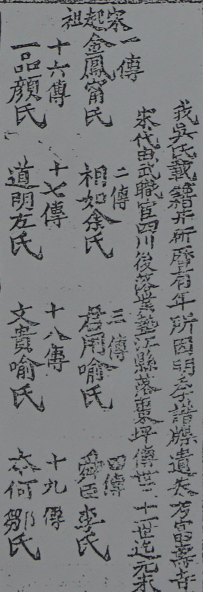 我吳氏載籍井所歷有年所因明季譜牒遺失考宗留壽奇
宋代由武職官四川後落業墊江縣落東坪傳世二十一世迄元末
宋起祖
一傳
金鳳甯氏
二傳
相如余氏
三傳
君用喻氏
四傳
舜臣李氏
十六傳
一品顏氏
十七傳
道明左氏
十八傳
文貴喻氏
十九傳
何鄒氏